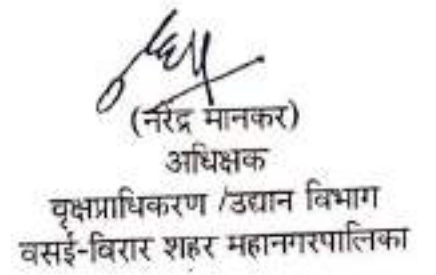 (नरेंद्र मानकर)
अधिक्षक
वृक्षप्राधिकरण /उद्यान विभाग
वसई-विरार शहर महानगरपालिका